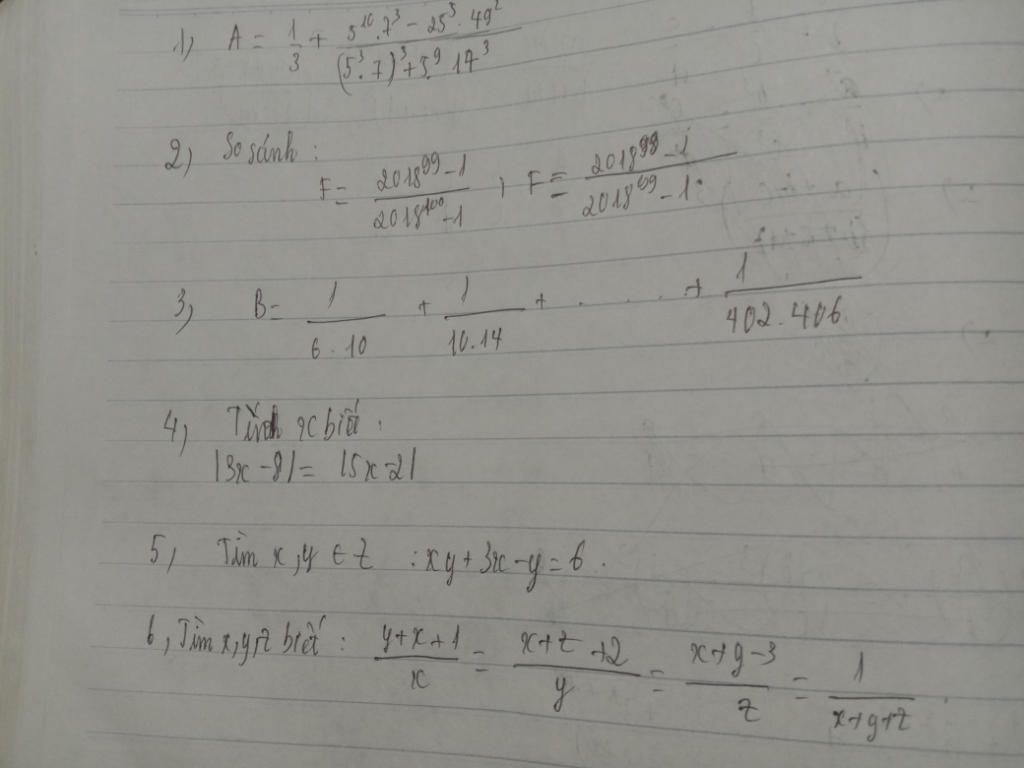 1) A = 1/3 + (5^10.7^3 - 25^5.49^2)/((5^3.7)^3 + 5^9.17^3)
2) So sánh :
F = (2018^99 - 1)/(2018^100 - 1) ; F = (2018^98 - 1)/(2018^99 - 1).
3) B = 1/(6.10) + 1/(10.14) + ....... + 1/(402.406)
4) Tính x biết :
|3x - 8| = |5x - 2|
5) Tìm x, y ∈ Z : xy + 3x - y = 6.
6, Tìm x, y, z biết : (y+x+1)/x = (x+z+2)/y = (x+y-3)/z = 1/(x+y+z).